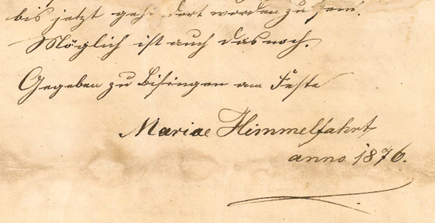 bis jetzt geh. dort worden zu sein.
Möglich ist auch das noch.
Gegeben zu Bisingen am Feste
Mariae Himmelfahrt
anno 1876.